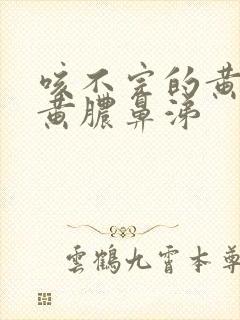 咳不完的黄
黄膿鼻涕
雲鶴九霄本尊